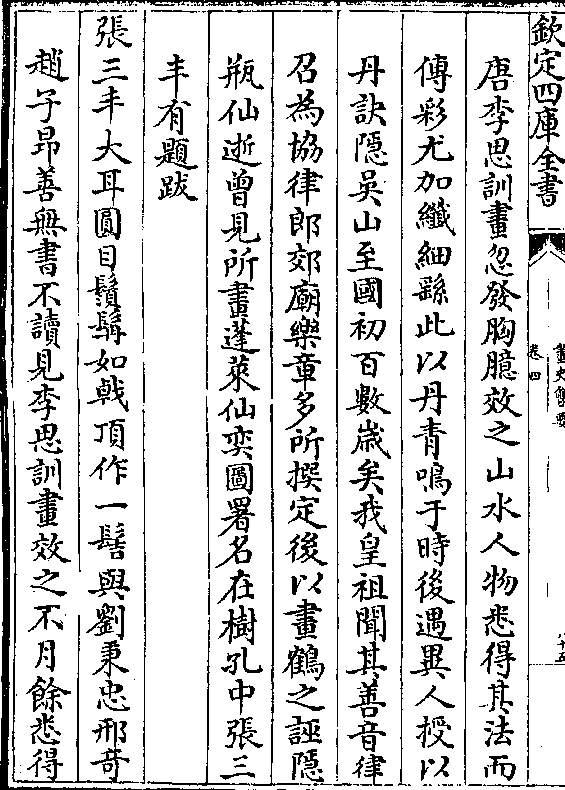 欽定四庫全書
畫史會要
卷四
八十五
唐李思訓畫忽發胸臆效之山水人物悉得其法而
傅彩尤加纖細繇此以丹青鳴于時後遇異人授以
丹訣隠吳山至國初百數歲矣我皇祖聞其善音律
召為協律郎郊廟樂章多所撰定後以畫鶴之誣隠
瓶仙逝曾見所畫蓬萊仙奕圖署名在樹孔中張三
丰有題跋
張三丰大耳圓目鬚髯如戟頂作一髻與劉秉忠邢竒
趙子昂善無書不讀見李思訓畫效之不月餘悉得